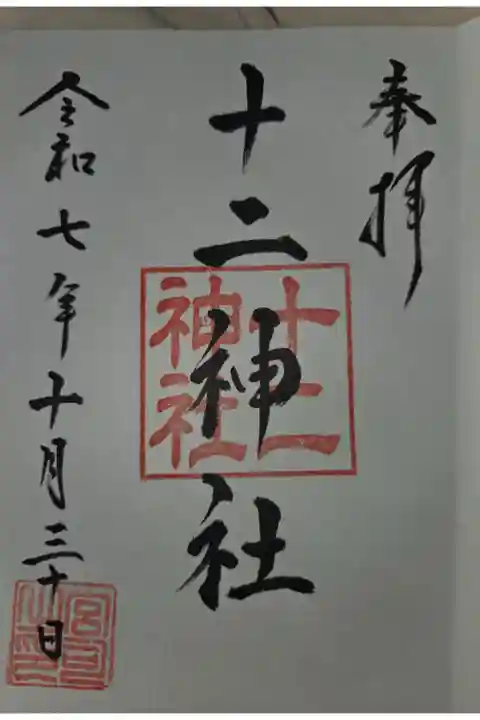 奉拝
十二神社
十二
神社
令和七年十月三十日